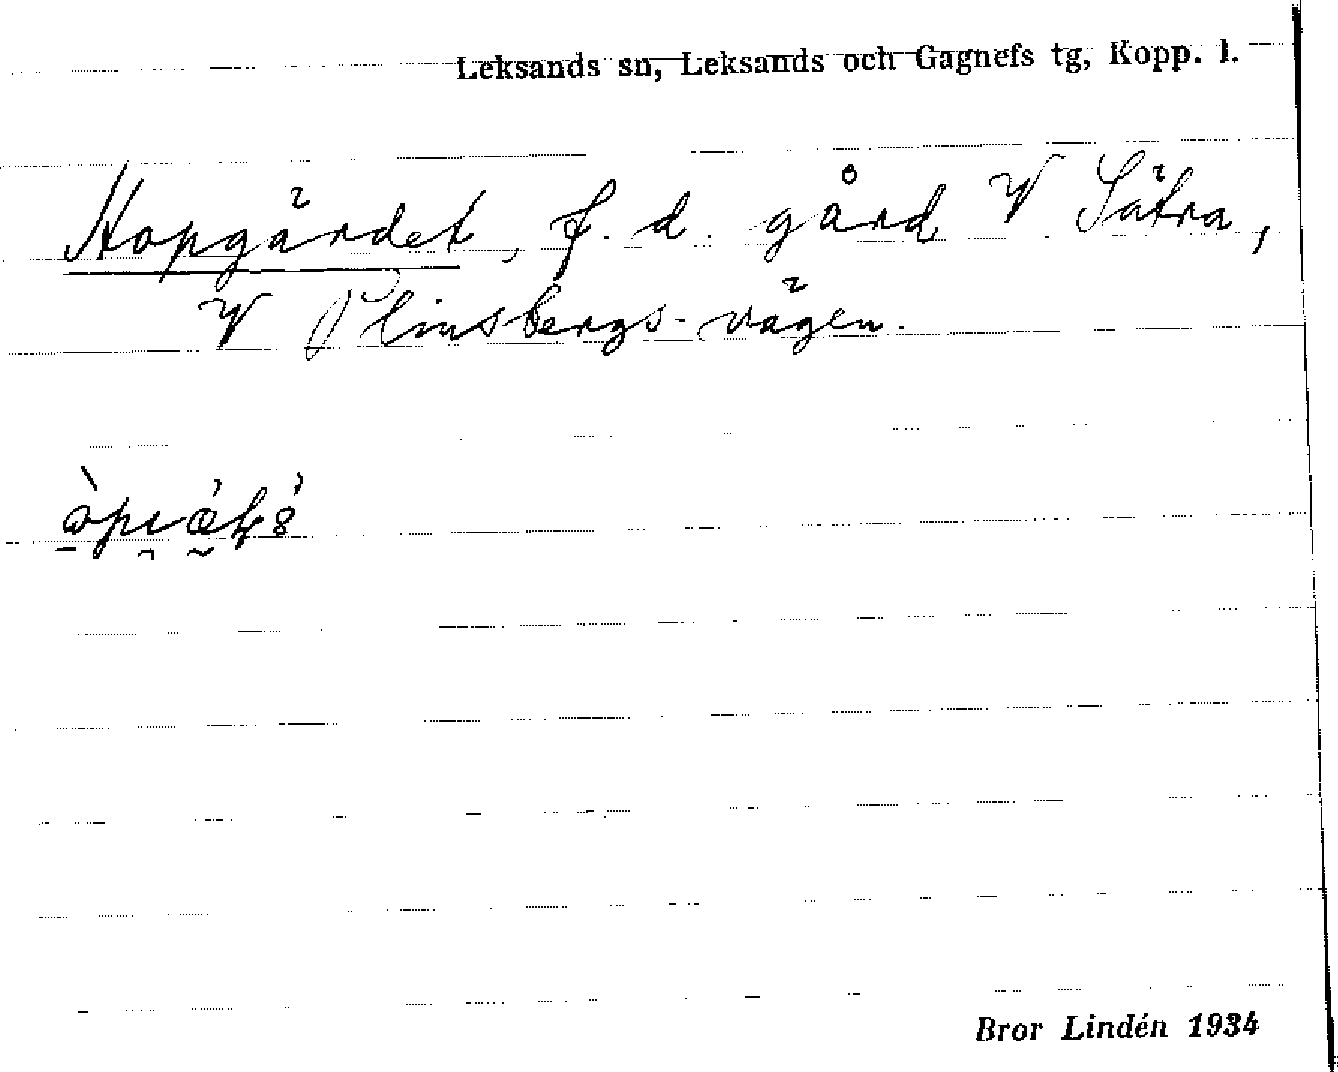 Leksands sn, Leksands och Gagnefs tg, Kopp. l.
Hopgärdet, f. d. gård V Sätra,
V Plintsbergs-vägen.
Bror Lindén 1934